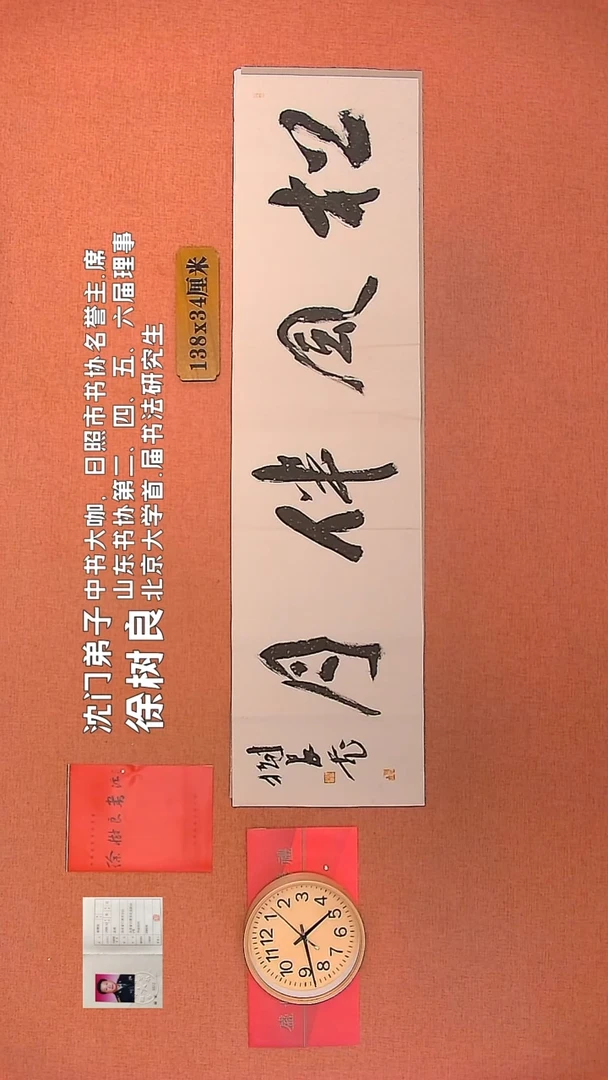 沈门弟子
徐树良
中书大咖、日照市书协名誉主席
山东书协第二、四、五、六届理事
北京大学首届书法研究生
138x34厘米
松風伴月
树良书
徐树良书法
12
1
2
3
4
5
6
7
8
9
10
11